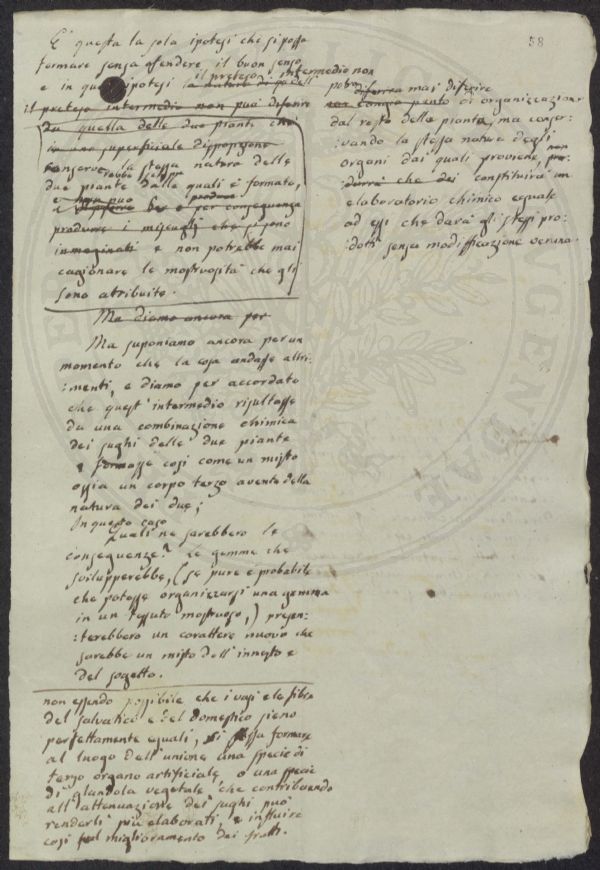 58
E' questa la sola ipotesi che si possa
formare senza ofendere il buon senso
e in questa ipotesi la natura di
il preteso intermedio non
il preteso intermedio non può diferire
da quella delle due piante che
una superficiale disposizione
conserve la stessa natura delle
rebbe sempre
due piante dalle quali è formato,
e non può produrre
e per conseguenza
produrre i miscugli che si sono
inmaginati e non potrebbe mai
cagionare le mostruosità che gli
sono atribuite.
Ma diamo ancora per
Ma suponiamo ancora per un
momento che la cosa andasse altri-
:menti, e diamo per accordato
che quest' intermedio risultasse
da una combinazione chimica
dei sughi delle due piante
e formasse così come un misto
ossia un corpo terzo avente della
natura dei due;
In questo caso
Quali ne sarebbero le
conseguenze? Le gemme che
svilupperebbe, (se pure è probabile
che potesse organizzarsi una gemma
in un tessuto mostruoso,) presen-
:terebbero un carattere nuovo che
sarebbe un misto dell'innesto e
del sogetto.
non essendo possibile che i vasi e le fibre
del salvatico e del domestico sieno
perfettamente eguali, si possa formare
al luogo dell'unione una specie di
terzo organo artificiale, o una specie
di glandola vegetale, che contribuendo
all'attenuazione dei sughi può
renderli più elaborati, e influire
così sul miglioramento dei frutti.
mai diferire
punto di organizzazione
dal resto della pianta, ma conser-
:vando la stessa natura degli
organi dai quali proviene, non
che dei constituirà un
elaboratorio chimico eguale
ad essi che darà gli stessi pro-
:dotti senza modifficazione veruna.